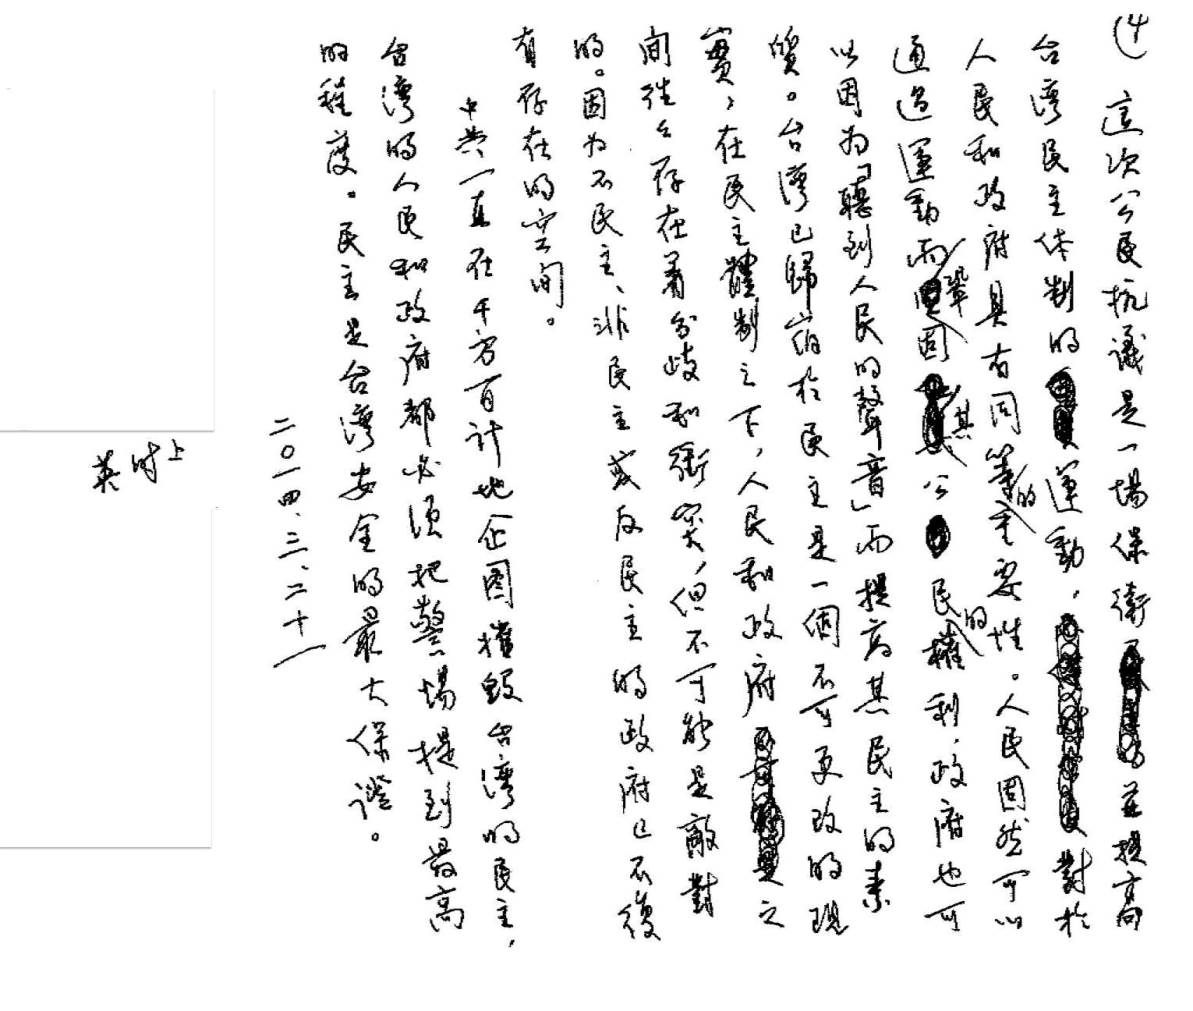 ④
這次公民抗議是一場保衛並提高
台灣民主体制的運動，對於
人民和政府具有同等的重要性。人民固然可以
通過運動而鞏固其公民的權利，政府也可
以因為「聽到人民的聲音」而提高其民主的素
質。台灣已歸宿於民主是一個不可更改的現
實，在民主體制之下，人民和政府之
間雖然存在着分歧和衝突，但不可能是敵對
的。因為不民主、非民主或反民主的政府已不復
有存在的空间。
中共一直在千方百计地企图摧毀台灣的民主，
台灣的人民和政府都必须把警惕提到最高
的程度。民主是台灣安全的最大保證。
二〇一四、三、二十一
英时上